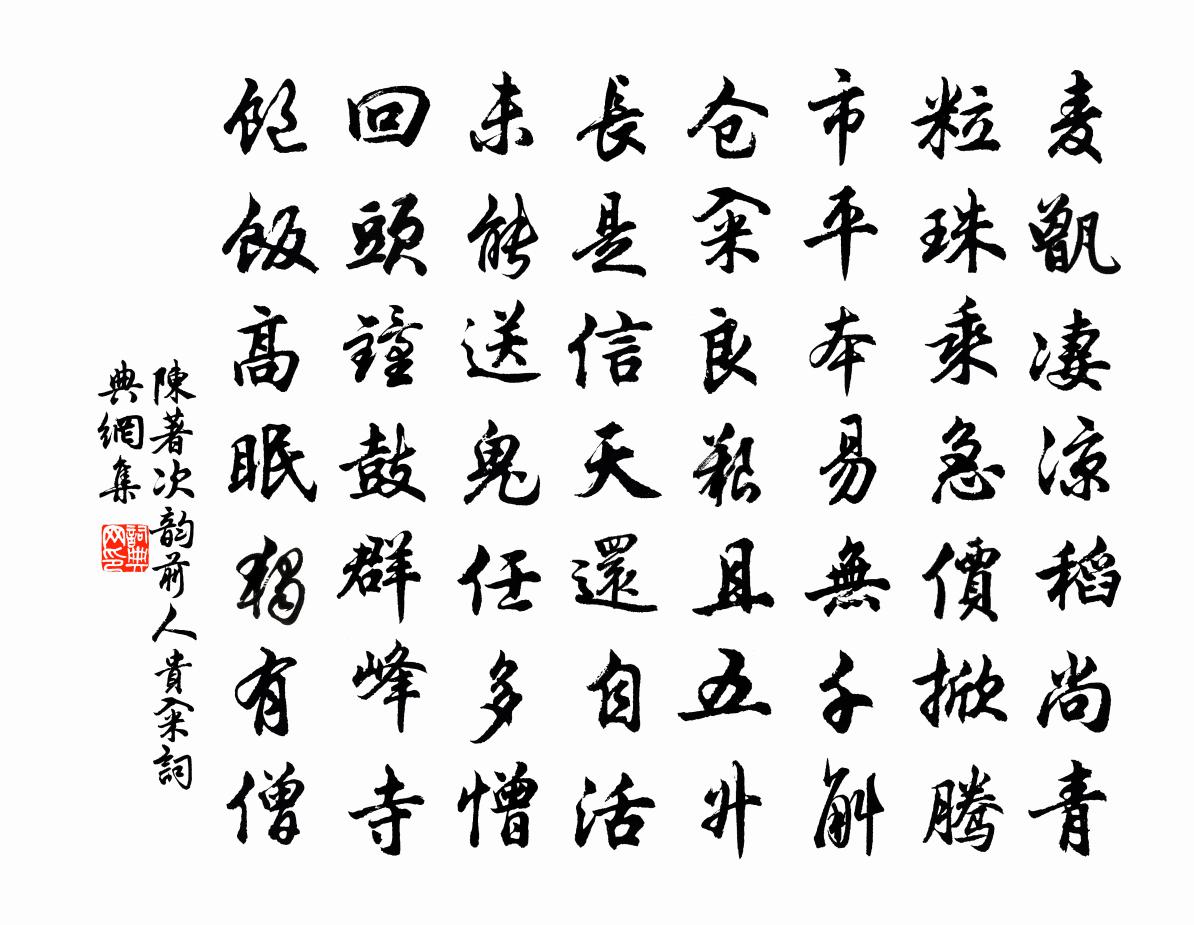 麦甑凄涼稻尚青
粒珠乘急價掀騰
市平本易無千斛
仓籴良艱且五升
長是信天還自活
未能送鬼任多憎
回頭鐘鼓群峰寺
飽飯高眠獨有僧
陳著次韵前人貴籴詞
典網集
詞典
网印